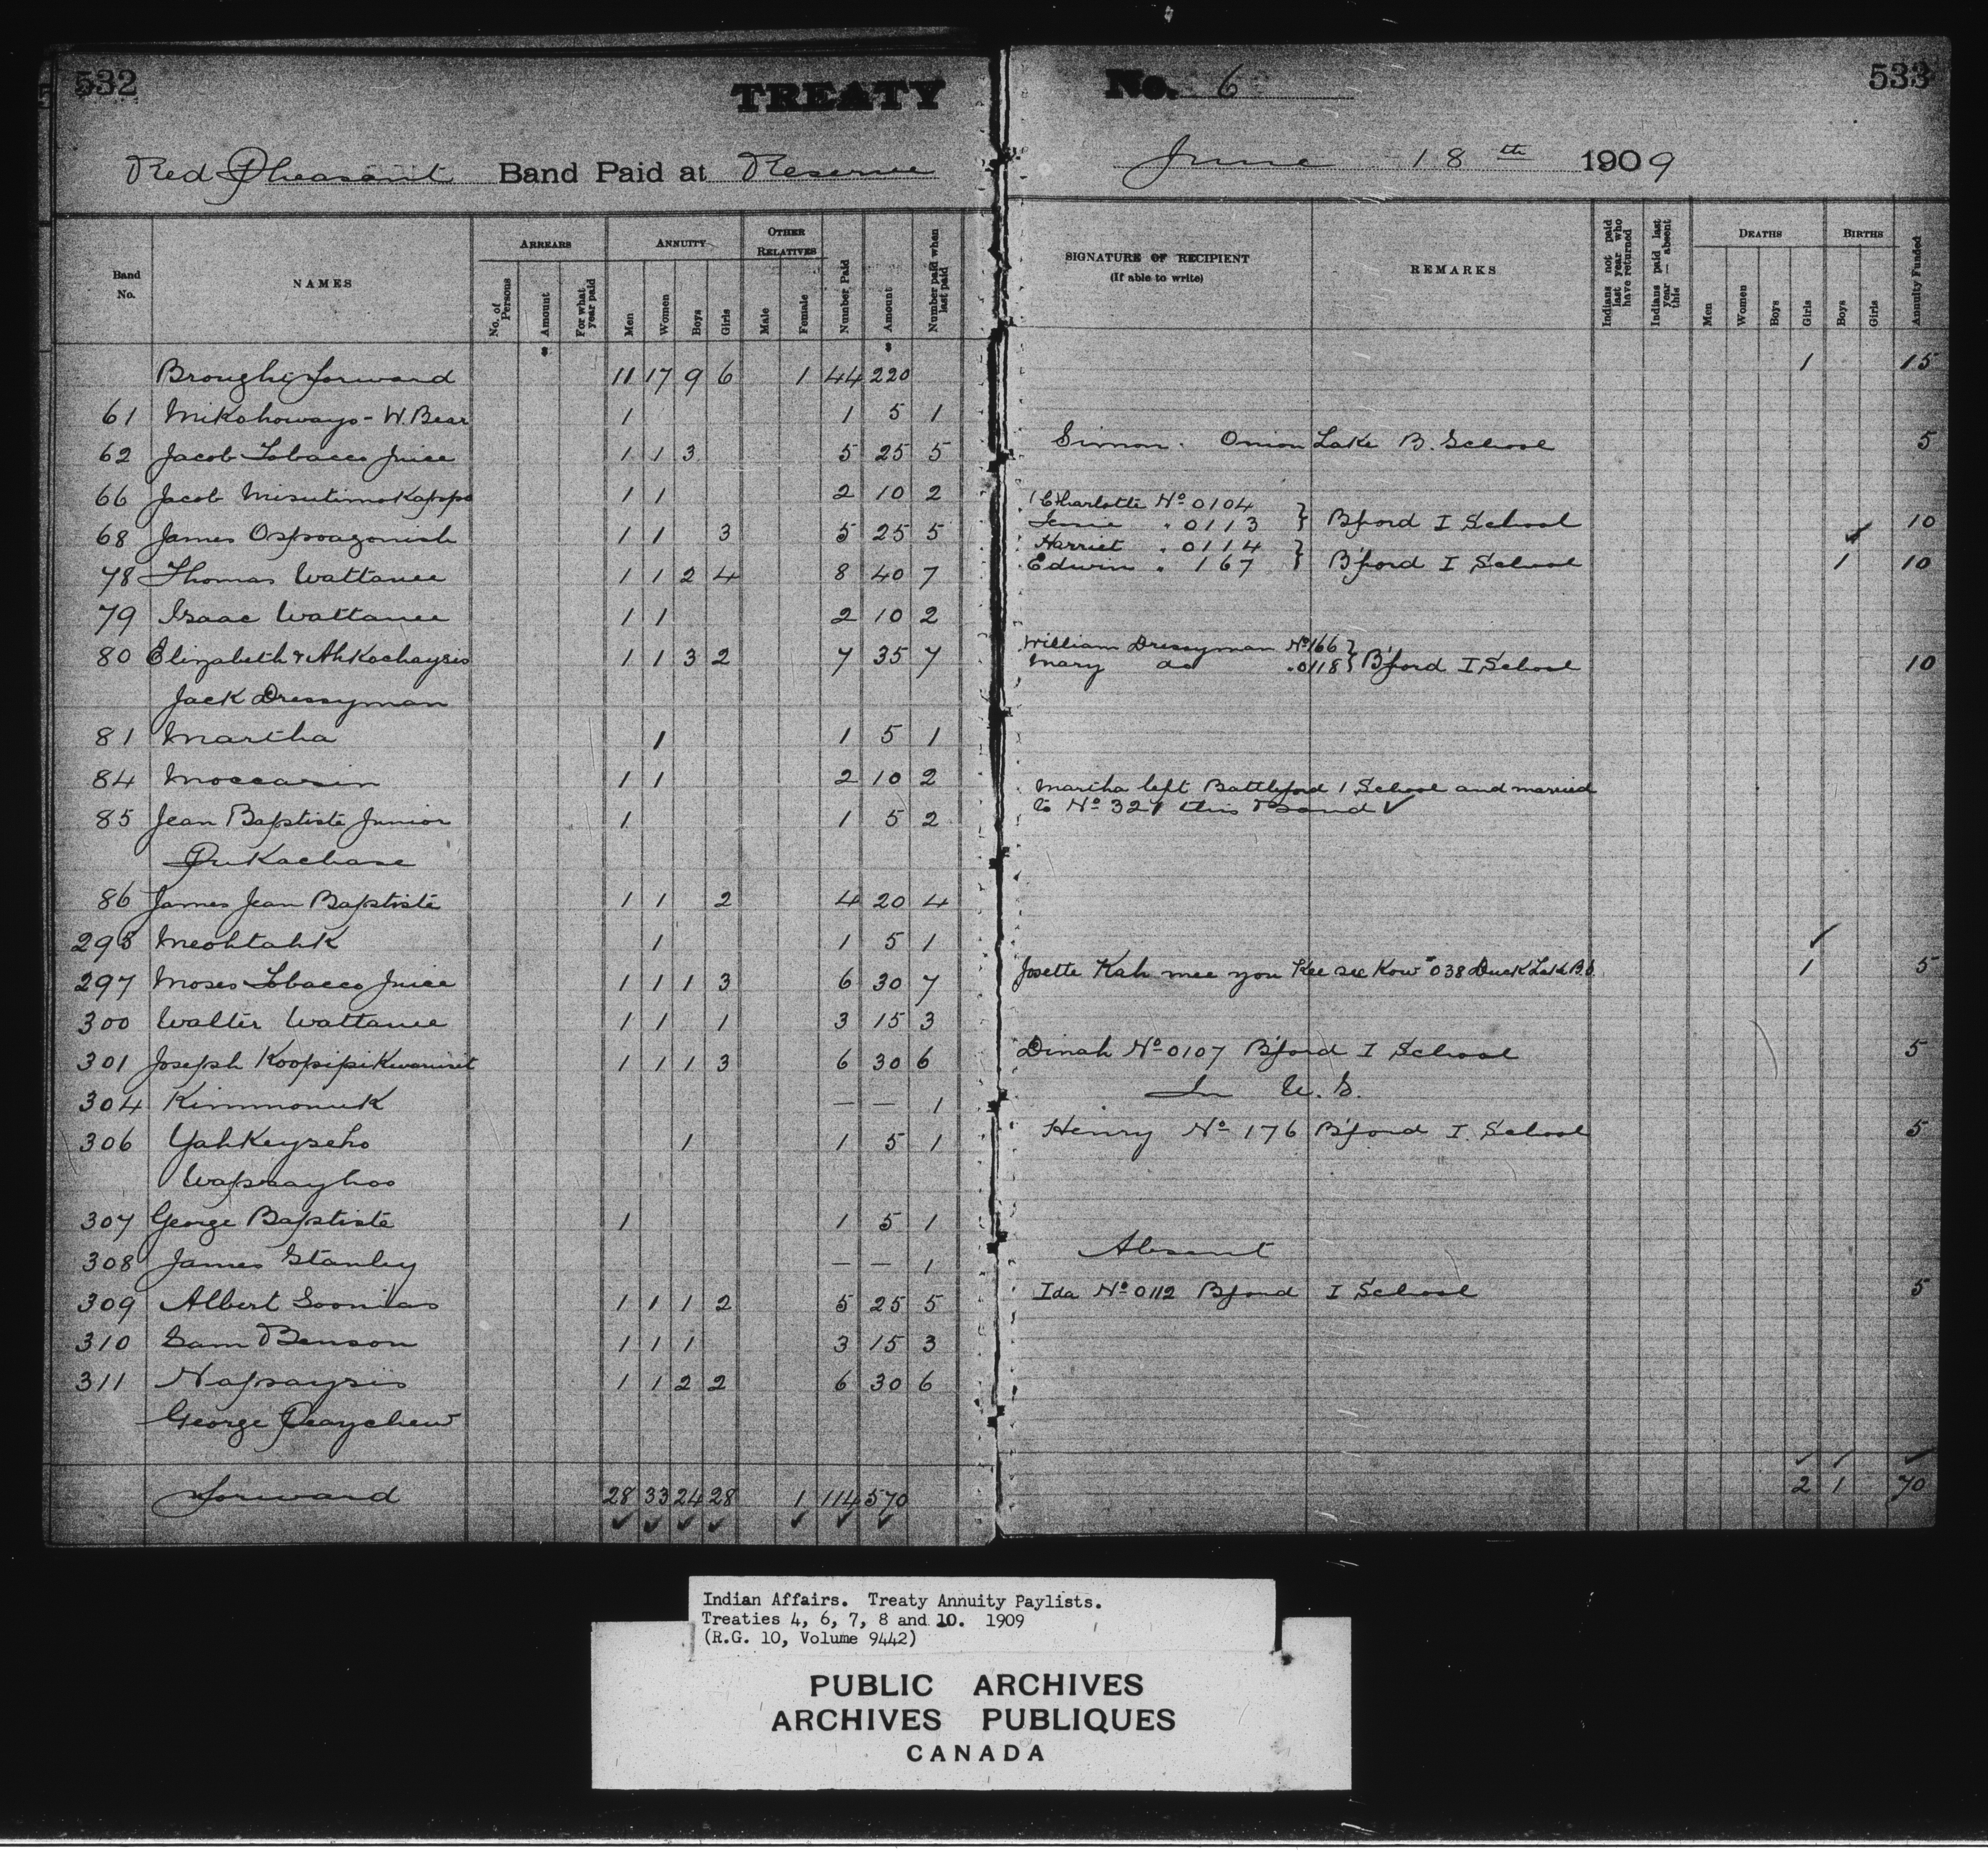 532
TREATY
No. 6
533
Red Pheasant Band Paid at Reserve
June 18th 1909
Band No. NAMES ARREARS No. of Persons Amount For what year paid ANNUITY Men Women Boys Girls OTHER RELATIVES Male Female Number Paid Amount Number paid when last paid SIGNATURE OF RECIPIENT (If able to write) REMARKS Indians not paid last year who have returned Indians paid last year — absent this DEATHS Men Women Boys Girls BIRTHS Boys Girls Annuity Funded
$ $
Brought forward 11 17 9 6 1 44 220 1 15
61 Mikahoways - W. Bear 1 1 5 1
62 Jacob Tobacco Juice 1 1 3 5 25 5 Simon. Onion Lake B. School 5
66 Jacob 1 1 2 10 2
68 James 1 1 3 5 25 5 Charlotte No 0104 Jessie " 0113 } B'ford I School 10
78 Thomas Wattanee 1 1 2 4 8 40 7 Harriet " 0114 Edwin " 167 } B'ford I School 1 10
79 Isaac Wattanee 1 1 2 10 2
80 Elizabeth & Ahkochaysis 1 1 3 2 7 35 7 William Dressyman No 166 Mary do " 0118 } B'ford I School 10
Jack Dressyman
81 Martha 1 1 5 1
84 Moccasin 1 1 2 10 2
85 Jean Baptiste Junior 1 1 5 2 Martha left Battleford I School and married to No 321 this Band ✓
86 James Jean Baptiste 1 1 2 4 20 4
295 Meohtahk 1 1 5 1
297 Moses Tobacco Juice 1 1 1 3 6 30 7 Josette Kah mee you Kee see Kow "038 Duck Lake B.S 1 5
300 Walter Wattanee 1 1 1 3 15 3
301 Joseph 1 1 1 3 6 30 6 Dinah No 0107 B'ford I School 5
304 Kimmonuk — — 1 In U.S.
306 Yahkeyseho 1 1 5 1 Henry No 176 B'ford I. School 5
Wapsaayhoo
307 George Baptiste 1 1 5 1
308 James Stanley — — 1 Absent
309 Albert Soonias 1 1 1 2 5 25 5 Ida No 0112 B'ford I School 5
310 Sam Benson 1 1 1 3 15 3
311 Napaysis 1 1 2 2 6 30 6
George Peaychew
Forward 28 33 24 28 1 114 570 2 1 70
Indian Affairs. Treaty Annuity Paylists.
Treaties 4, 6, 7, 8 and 10. 1909
(R.G. 10, Volume 9442)
PUBLIC ARCHIVES
ARCHIVES PUBLIQUES
CANADA